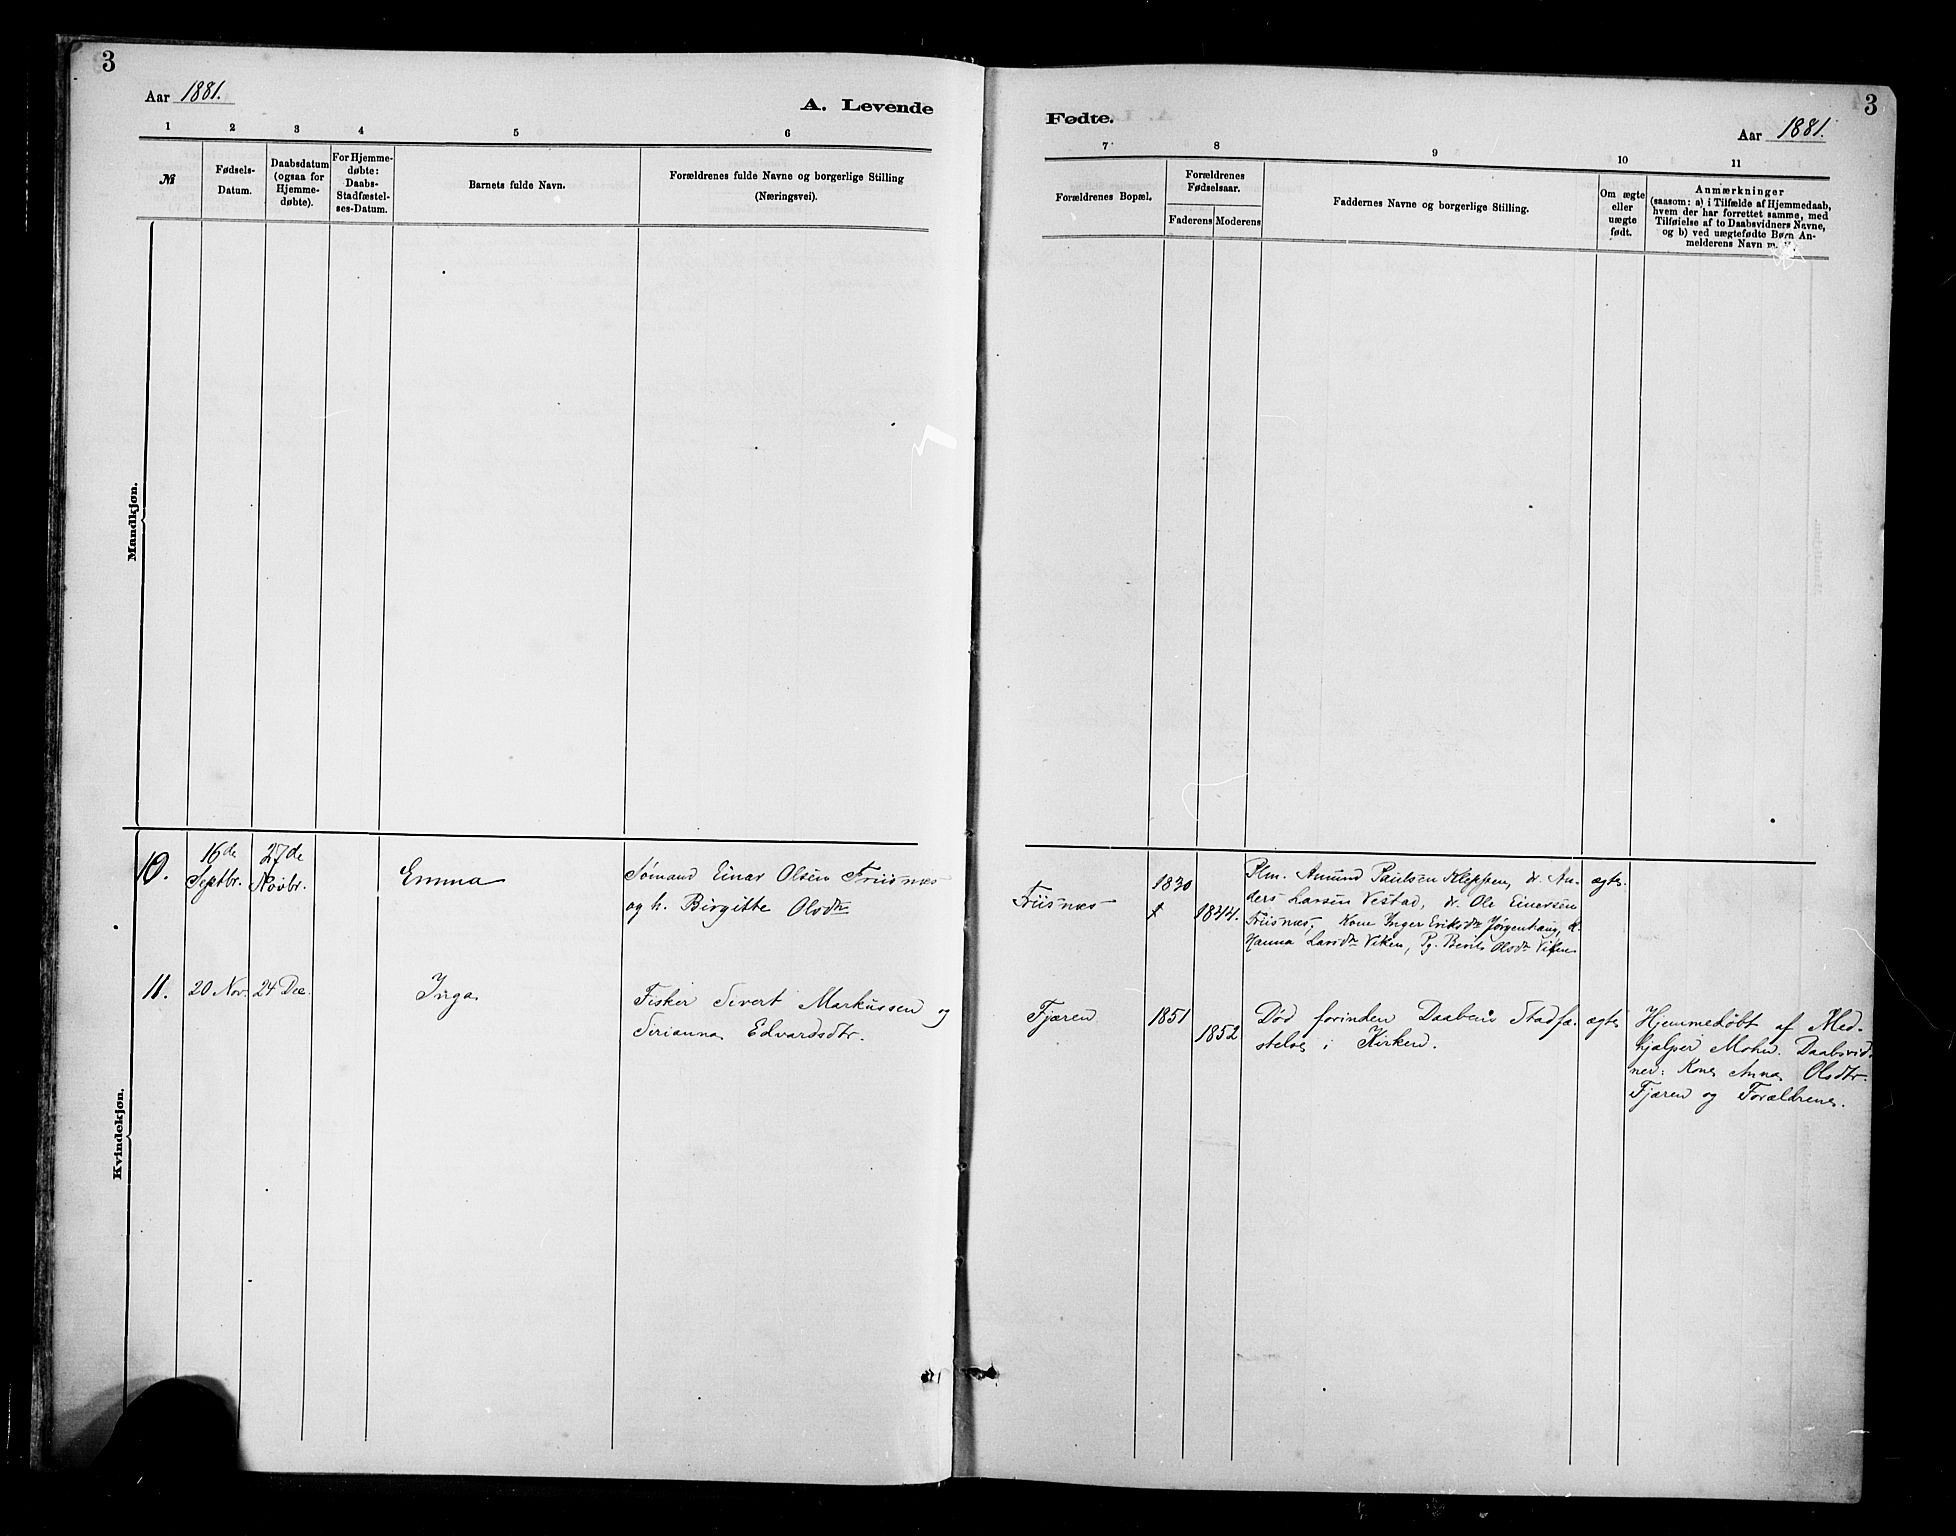 3
Aar 1881.
A. Levende
1 2 3 4 5 6
№
Fødsels-
Datum.
Daabsdatum
(ogsaa for
Hjemme-
døbte).
For Hjemme-
døbte:
Daabs-
Stadfæstel-
ses-Datum.
Barnets fulde Navn.
Forældrenes fulde Navne og borgerlige Stilling
(Næringsvei).
Mandkjøn.
10.
16de
Septbr.
27de
Novbr.
Emma
Sømand Einar Olsen Friisnæs
og h. Birgitte Olsdtr
11.
20 Nov.
24 Dec.
Inga
Fisker Sivert Markussen og
Serianna Edvardsdtr.
Kvindekjøn.
Fødte.
3
Aar 1881.
7 8 9 10 11
Forældrenes Bopæl.
Forældrenes
Fødselsaar.
Faderens Moderens
Faddernes Navne og borgerlige Stilling.
Om ægte
eller
uægte
født.
Anmærkninger
(saasom: a) i Tilfælde af Hjemmedaab,
hvem der har forrettet samme, med
Tilføielse af to Daabsvidners Navne,
og b) ved uægtefødte Børn An-
melderens Navn
Friisnæs
1830
1844.
Plm. Amund Paulsen Kleppen, dr. An-
ders Larsen Vestad, dr. Ole Einersen
Friisnæs, Kone Inger Eriksdtr Jørgenhaug,
Hanna Larsdtr Viken, Pg. Berit Olsdtr Viken
ægte.
Fjæren
1851
1852
Død forinden Daabens Stadfæ-
stelse i Kirken.
ægte
Hjemmedøbt af Med-
hjælper Mohn. Daabsvid-
ner: Kone Anna Olsdtr.
Fjæren og Forældrene.